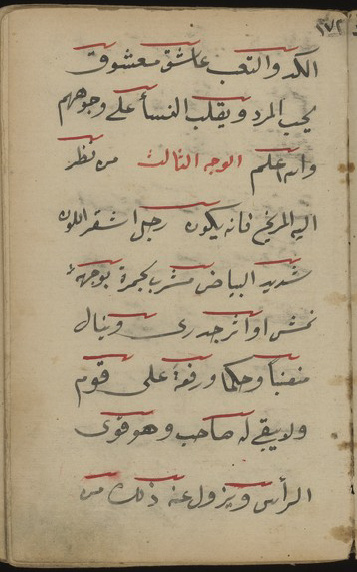 ١٧٢
الكد والتعب عاشق معشوق
يحب المرد ويقلب النسأ على وجوههم
والله اعلم الوجه الثالث من نظر
اليه المريخ فانه يكون رجل اشقر اللون
شديد البياض مشرب بحمرة بوجهه
نمش او اثر جدرى وينال
منصباً وحكما ورفعة على قوم
ولا يبقى له صاحب وهو قوى
الرأس ويزول عنه ذلك من